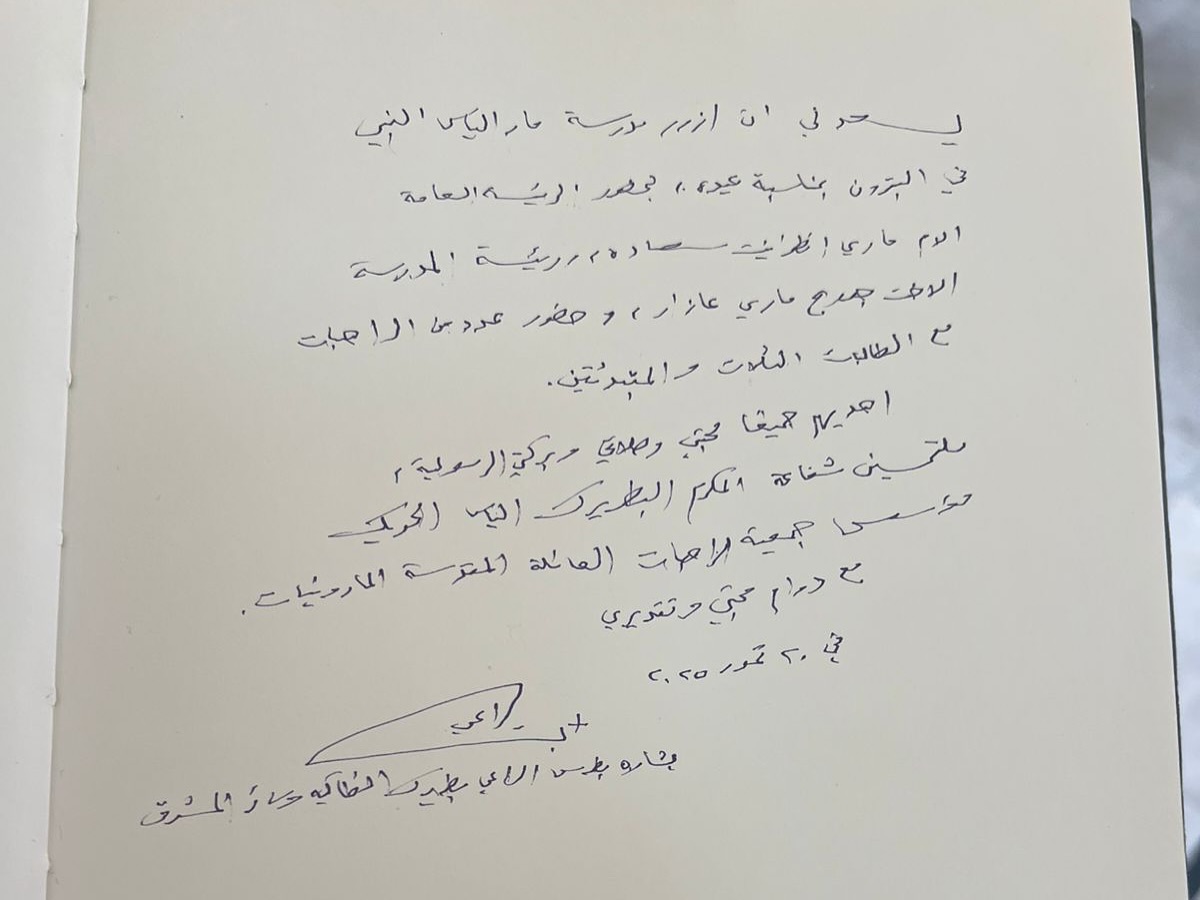 يسعدني ان ازور مدرسة مار الياس النبي
في البترون بمناسبة عيده، بحضور الرئيسة العامة
الام ماري انطوانيت سعاده، ورئيسة المدرسة
الاخت ماري عازار، و حضور عدد من الراهبات
مع الطالبات الثلاث و المبتدئتين.
اهديهم جميعا محبتي وصلاتي وبركتي الرسولية،
ملتمسين شفاعة المكرم البطريرك الياس الحويك
مؤسس جمعية راهبات العائلة المقدسة المارونيات.
مع دوام محبتي و تقديري
في ٢٠ تموز ٢٠٢٥
+ الراعي
بشاره بطرس الراعي بطريرك انطاكيه وسائر المشرق